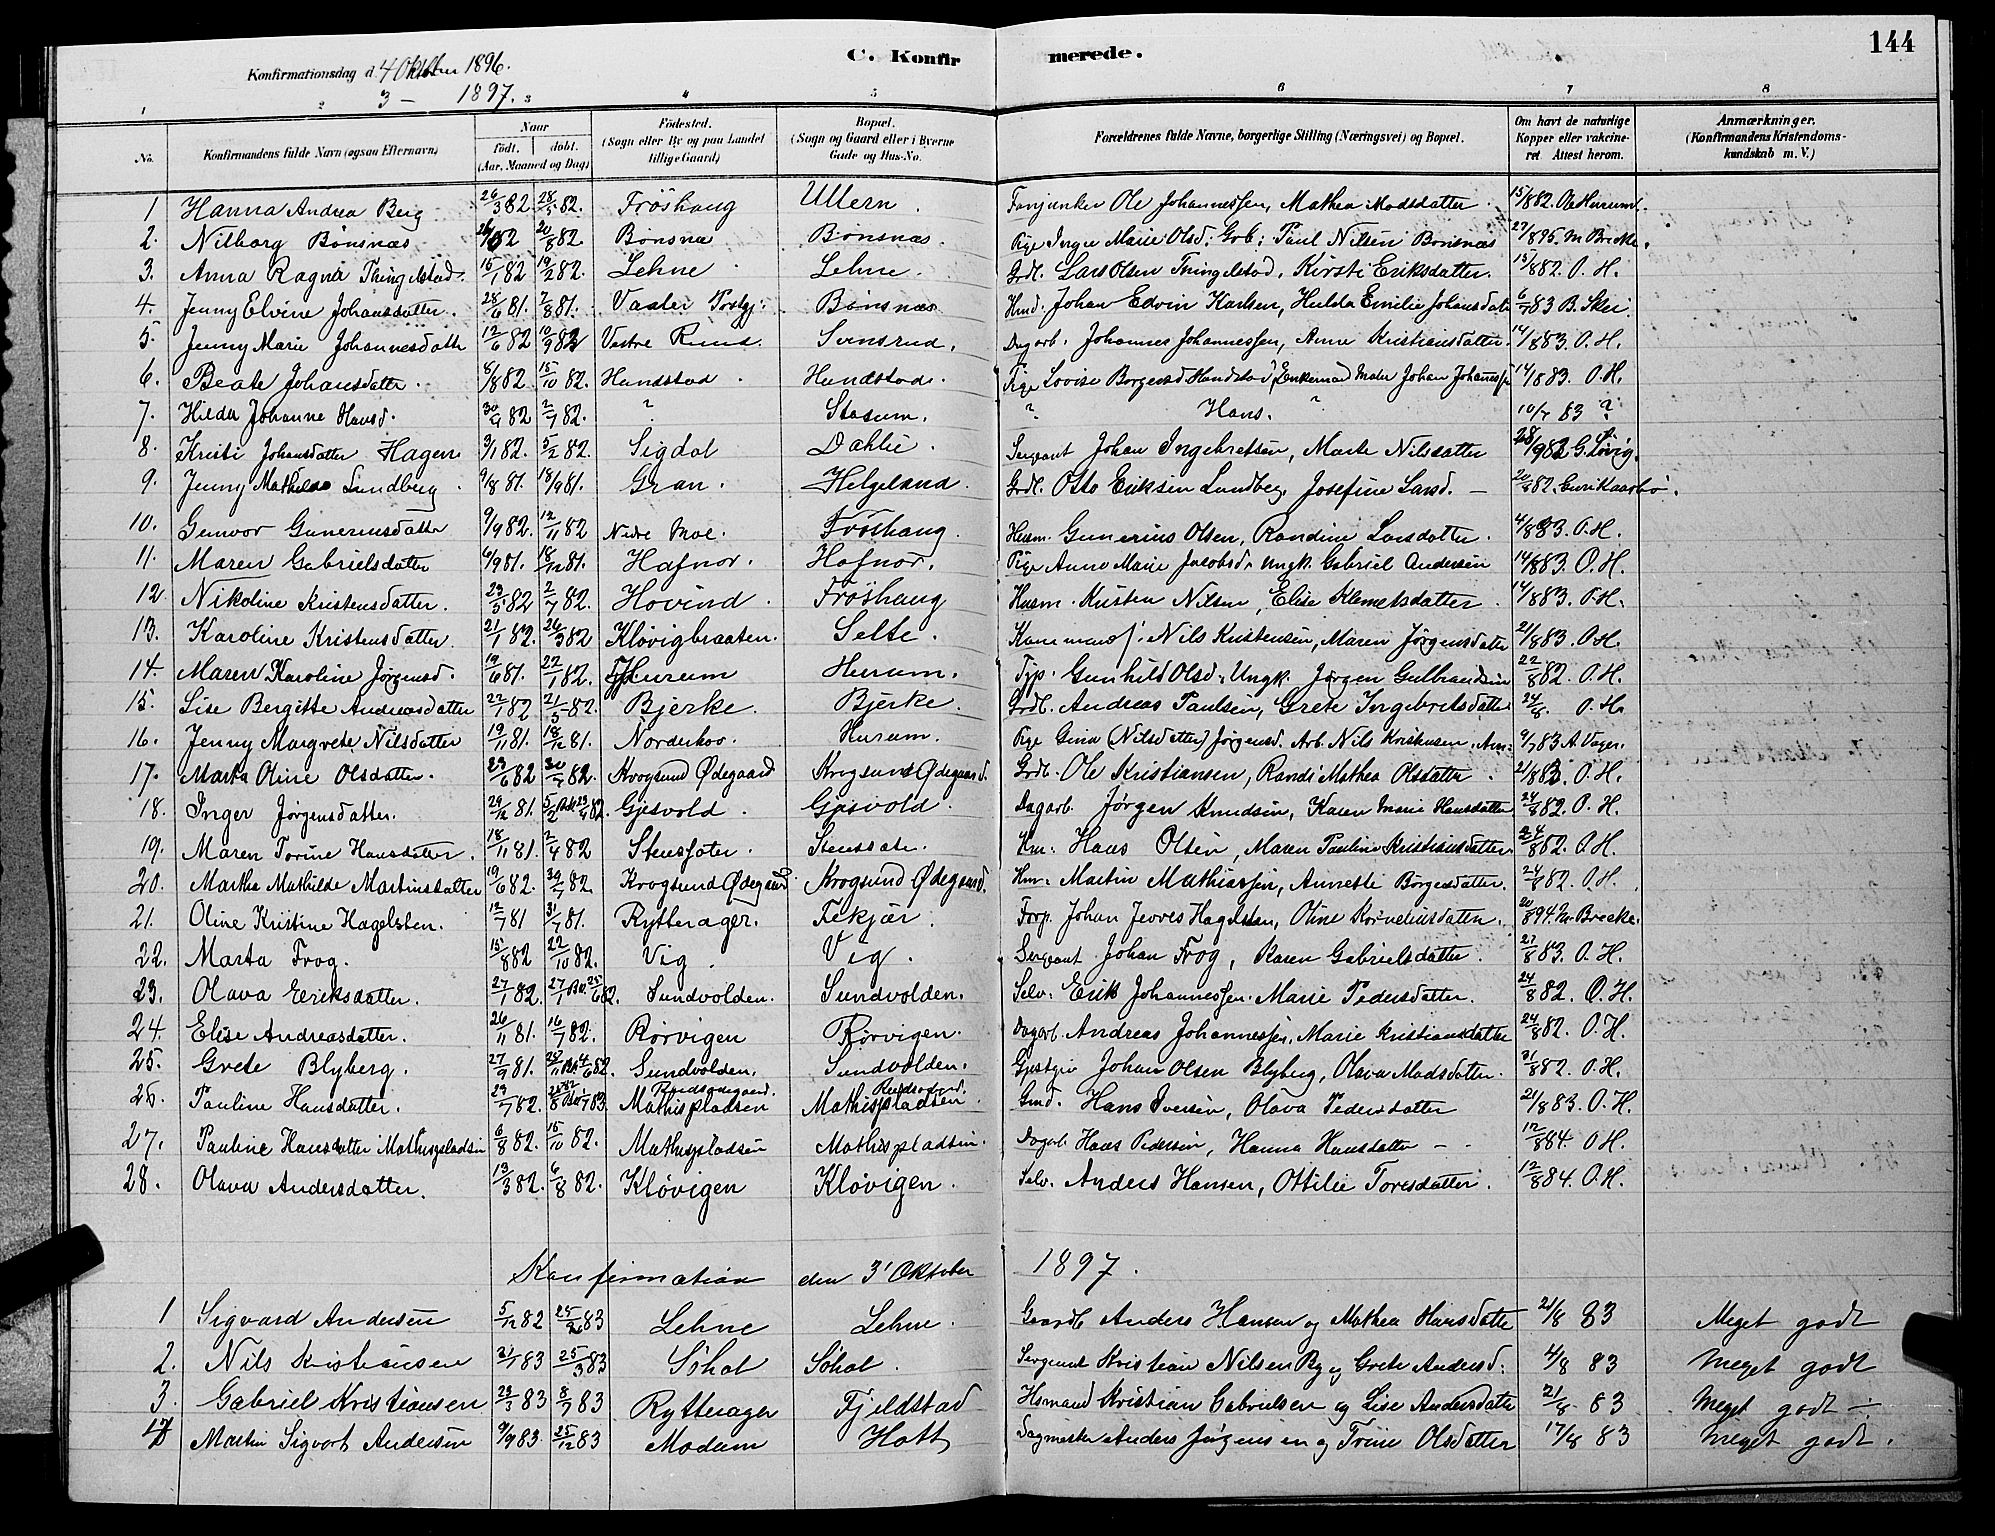 144
C. Konfirmerede.
Konfirmationsdag d. 4 Oktober 1896.
3 — 1897.
1 2 3 4 5 6 7 8
No. Konfirmandens fulde Navn (ogsaa Efternavn) Naar født. døbt. (Aar, Maaned og Dag) Fødested. (Sogn eller By og paa Landet tillige Gaard) Bopæl. (Sogn og Gaard eller i Byerne Gade og Hus-No. Forældrenes fulde Navne, borgerlige Stilling (Næringsvei) og Bopæl. Om havt de naturlige Kopper eller vakcineret Attest herom. Anmærkninger. (Konfirmandens Kristendomskundskab m. V.)
1 Hanna Andrea Berg 26/3 82 28/5 82. Fröshaug Ullern. Fanjunker Ole Johannessen, Mathea Madsdatter. 15/8 82. Ole Hurum.
2. Nilborg Bönsnæs 20/8 82 Bönsnæ Bönsnæs. Pige Inger Marie Olsd: Grb: Paul Nilsen Bönsnæs 27/8 95. M Brekke.
3. Anna Ragna Thingelstad 15/1 82 19/2 82. Lehne Lehne. Grdl. Lars Olsen Thingelstad, Kirsti Eriksdatter. 15/8 82. O. H.
4. Jenny Elvine Johansdatter. 28/6 81. 7/8 81. Vaaler Prstgj: Bönsnæs Hmd. Johan Edvin Karlsen, Hulda Emilie Johansdatt 6/7 83 B. Skei
5. Jenny Marie Johannesdatte 12/6 82 10/9 82 Vestre Rund. Svensrud. Dagarb. Johannes Johannessen, Anne Kristiansdatter. 14/8 83. O. H.
6. Beate Johansdatter. 5/8 82. 15/10 82. Hundstad Hundstad. Pige Lovise Borgersd Hundstad, Enkemand Maler Johan Johanss 14/8 83. O. H.
7. Hilda Johanne Hansd. 30/4 82 2/7 82. ? Stasum. ? Hans. ? 10/7 83 ?
8. Kristi Johansdatter Hagen 3/1 82. 5/2 82. Sigdal Dahlie. Sergeant Johan Ingebretsen, Marte Nilsdatter 28/9 82 G. Lövig.
9. Jenny Mathilde Lundberg 9/8 81. 18/9 81. Gran. Helgeland. Grdl. Otto Eriksen Lundbeg, Josefine Larsd. — 20/8 82.
10. Gunvor Gunerusdatte 9/9 82. 12/11 82 Nedre Moe. Fröshaug. Husm. Gunerius Olsen, Randine Larsdatter. 4/8 83. O. H.
11. Maren Gabrielsdatter 6/9 81. 18/12 81. Hafnor. Hafnor. Pige Anne Marie Jacobsd. Ungk. Gabriel Andersen 14/8 83. O. H.
12 Nikoline Kristensdatter. 23/5 82 2/7 82. Hovind Fröshaug Husm. Kristen Nilsen, Elise Klemetsdatter. 14/8 83. O. H.
13. Karoline Kristensdatter. 21/1 82. 26/3 82 Klövigbraaten. Selte. Nils Kristensen, Maren Jörgensdatter 21/8 83. O. H.
14. Maren Karoline Jörgensd. 19/6 81. 22/1 82. Hurum Hurum. Tjp. Gunhild Olsd. Ungk. Jörgen Gulbrandsen 22/8 82. O. H.
15. Lise Bergitte Andreasdatter 22/1 82 21/5 82. Bjerke. Bjerke. Grdl. Andreas Paulsen, Grete Ingebretsdatter 24/8. O. H.
16. Jenny Margrete Nilsdatter 19/11 81. 18/12 81. Norderhov. Hurum. Pige Gina (Nilsdatter) Jörgensd. Arb. Nils Kristiansen. 9/7 83 A. Vager.
17. Marta Oline Olsdatter. 23/6 82 30/7 82. Krogsund Ødegaard Krogsund Ødegaard. Grdl. Ole Kristiansen, Randi Mathea Olsdatter 21/8 83. O. H.
18. Inger Jörgensdatter. 29/12 81. 5/2 82. Gjesvold. Gjesvold. Dagarb. Jörgen Knudsen, Karen Marie Hansdatter 24/8 82. O. H.
19. Maren Torine Hansdatter. 18/11 81. 2/4 82 Stensfoter. Stenssate. Hm: Hans Olsen, Maren Pauline Kristiansdatter 24/8 82. O. H.
20. Martha Mathilde Martinsdatter 19/6 82. 30/7 82 Krogsund Ødegaard Krogsund Ødegaard. Hm: Martin Mathiassen, Annette Börgersdatter. 24/8 82. O. H.
21. Oline Kristine Hagelsten. 12/7 81 31/7 81. Rytterager. Fekjær. Forp. Johan Jevves Hagelsten, Oline Korneliusdatter. 20/8 94. M. Brecke.
22. Marta Frog. 15/8 82 22/10 82. Vig. Vig. Sergeant Johan Frog, Karen Gabrielsdatter. 21/8 83. O. H.
23. Olava Eriksdatter. 27/1 82. 27/1 82. Sundvolden. Sundvolden. Selv: Erik Johannessen. Marie Pedersdatter. 24/8 82. O. H.
24. Elise Andreasdatter. 26/11 81. 16/7 82. Rörvigen Rörvigen. Dagarb. Andreas Johannessen, Marie Kristiansdatter 24/8 82. O. H.
25. Grete Blyberg. 27/9 81. 4/6 82. Sundvolden. Sundvolden. Gjestgiv Johan Olsen Blyberg, Olava Madsdatter. 31/8 82. O. H.
26. Pauline Hansdatter. 23/7 82. Rudsödegaard. Mathispladsen Rudsödegrd. Mathispladsen Gmd. Hans Iversen, Olava Pedersdatter 21/8 83. O. H.
27. Pauline Hansdatter Mathispladsen 6/8 82. 15/10 82. Mathispladsen Mathispladsen. Dagarb. Hans Pedersen, Hanna Hansdatter — 12/8 84. O H.
28. Olava Andersdatter. 13/3 82. 6/8 82. Klövigen Klövigen. Selv. Anders Hansen, Ottilie Toresdatter. 12/8 84. O. H.
Konfirmation den 3' Oktober 1897.
1 Sigvard Andersen 5/12 82 25/2 83 Lehne Lehne. Gaardb Anders Hansen og Mathea Hansdatte 21/8 83 Meget godt
2. Nils Kristiansen 31/1 83 25/3 83 Söhol Söhol. Sergeant Kristian Nilsen By og Grete Andersd: 4/8 83 Meget godt
3. Gabriel Kristiansen 23/3 83 8/7 83 Rytterager Fjeldstad Hsmand Kristian Gabrielsen og Lise Andersdatte 21/8 83 Meget godt —
4 Martin Sigvart Andersen 9/9 83. 25/12 83 Modum Hott Sagmester Anders Jörgensen og Trine Olsdatter 17/8 83 Meget godt.